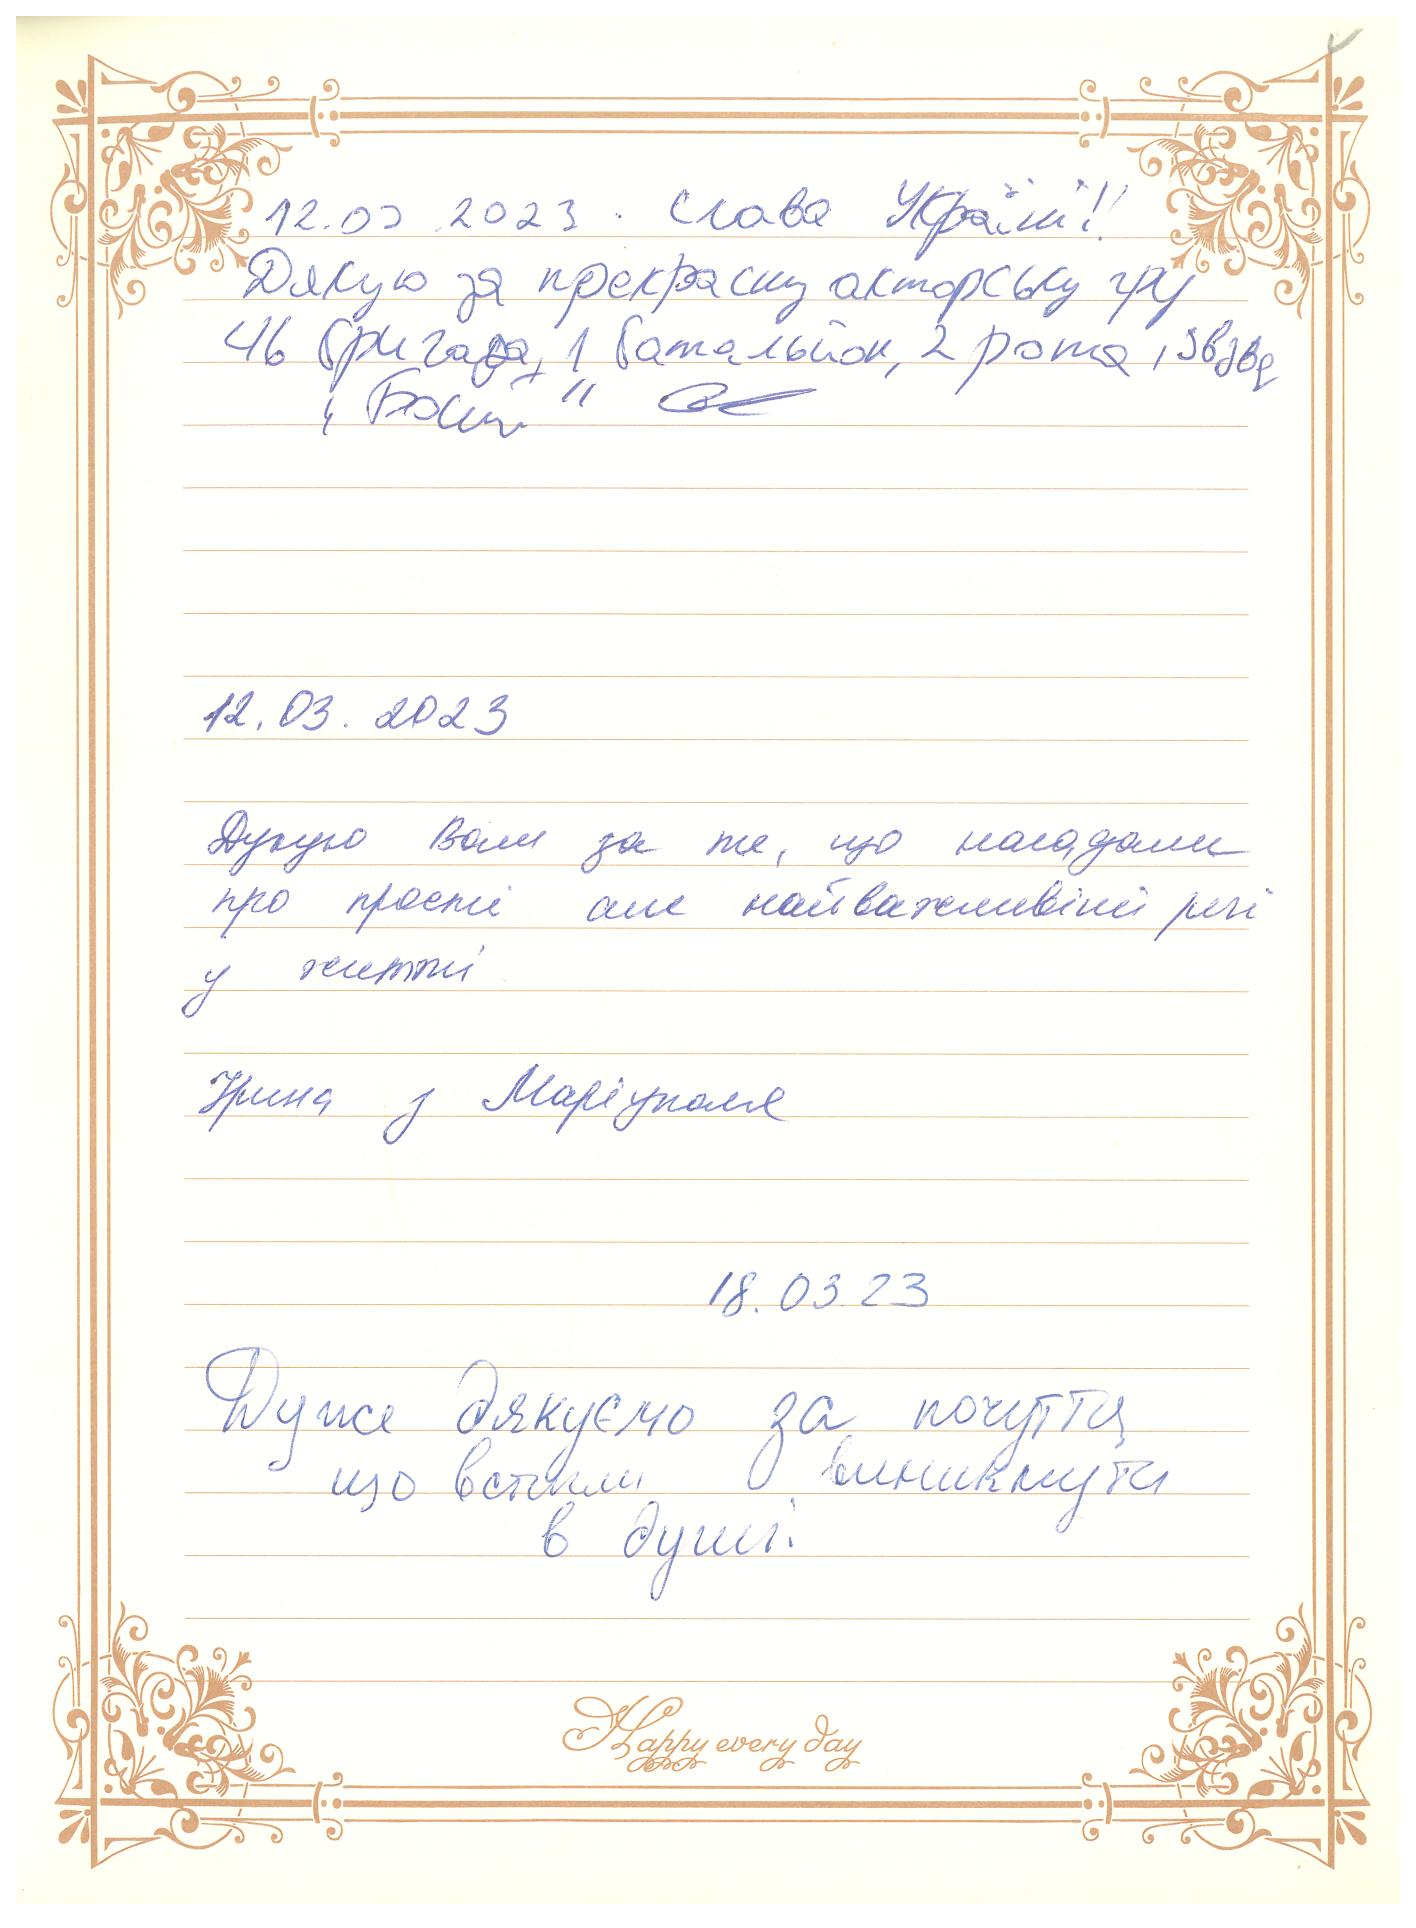 12.03 2023. Слава Україні!!
Дякую за прекрасну акторську гру
46 бригада, 1 батальйон, 2 рота, 3взвд
12.03.2023
Дякую Вам за те, що нагадали
про прості але найважливіші речі
у житті
Ірина з Маріуполя
18.03.23
Дуже дякуємо за почуття
що встигли виникнути
в душі.
Happy every day